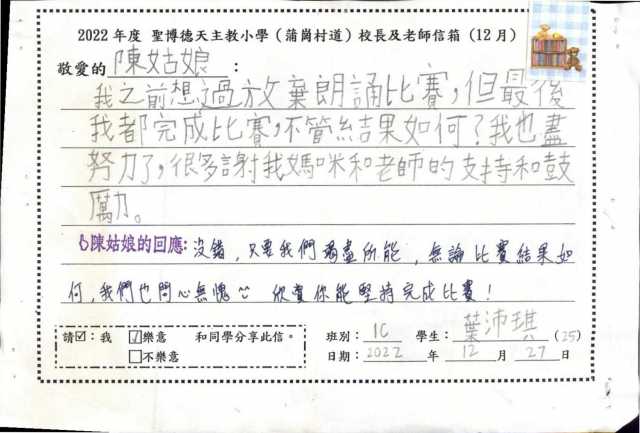 2022 年度 聖博德天主教小學（蒲崗村道）校長及老師信箱（12月）
敬愛的 陳姑娘 ：
我之前想過放棄朗誦比賽，但最後
我都完成比賽，不管結果如何？我也盡
努力了，很多謝我媽咪和老師的支持和鼓
厲力。
陳姑娘的回應: 沒錯，只要我們竭盡所能，無論比賽結果如
何，我們也問心無愧 欣賞你能堅持完成比賽！
請☑：我 ☑樂意 和同學分享此信。 班別： 1C 學生： 葉沛琪 (25)
□不樂意 日期： 2022 年 12 月 27 日